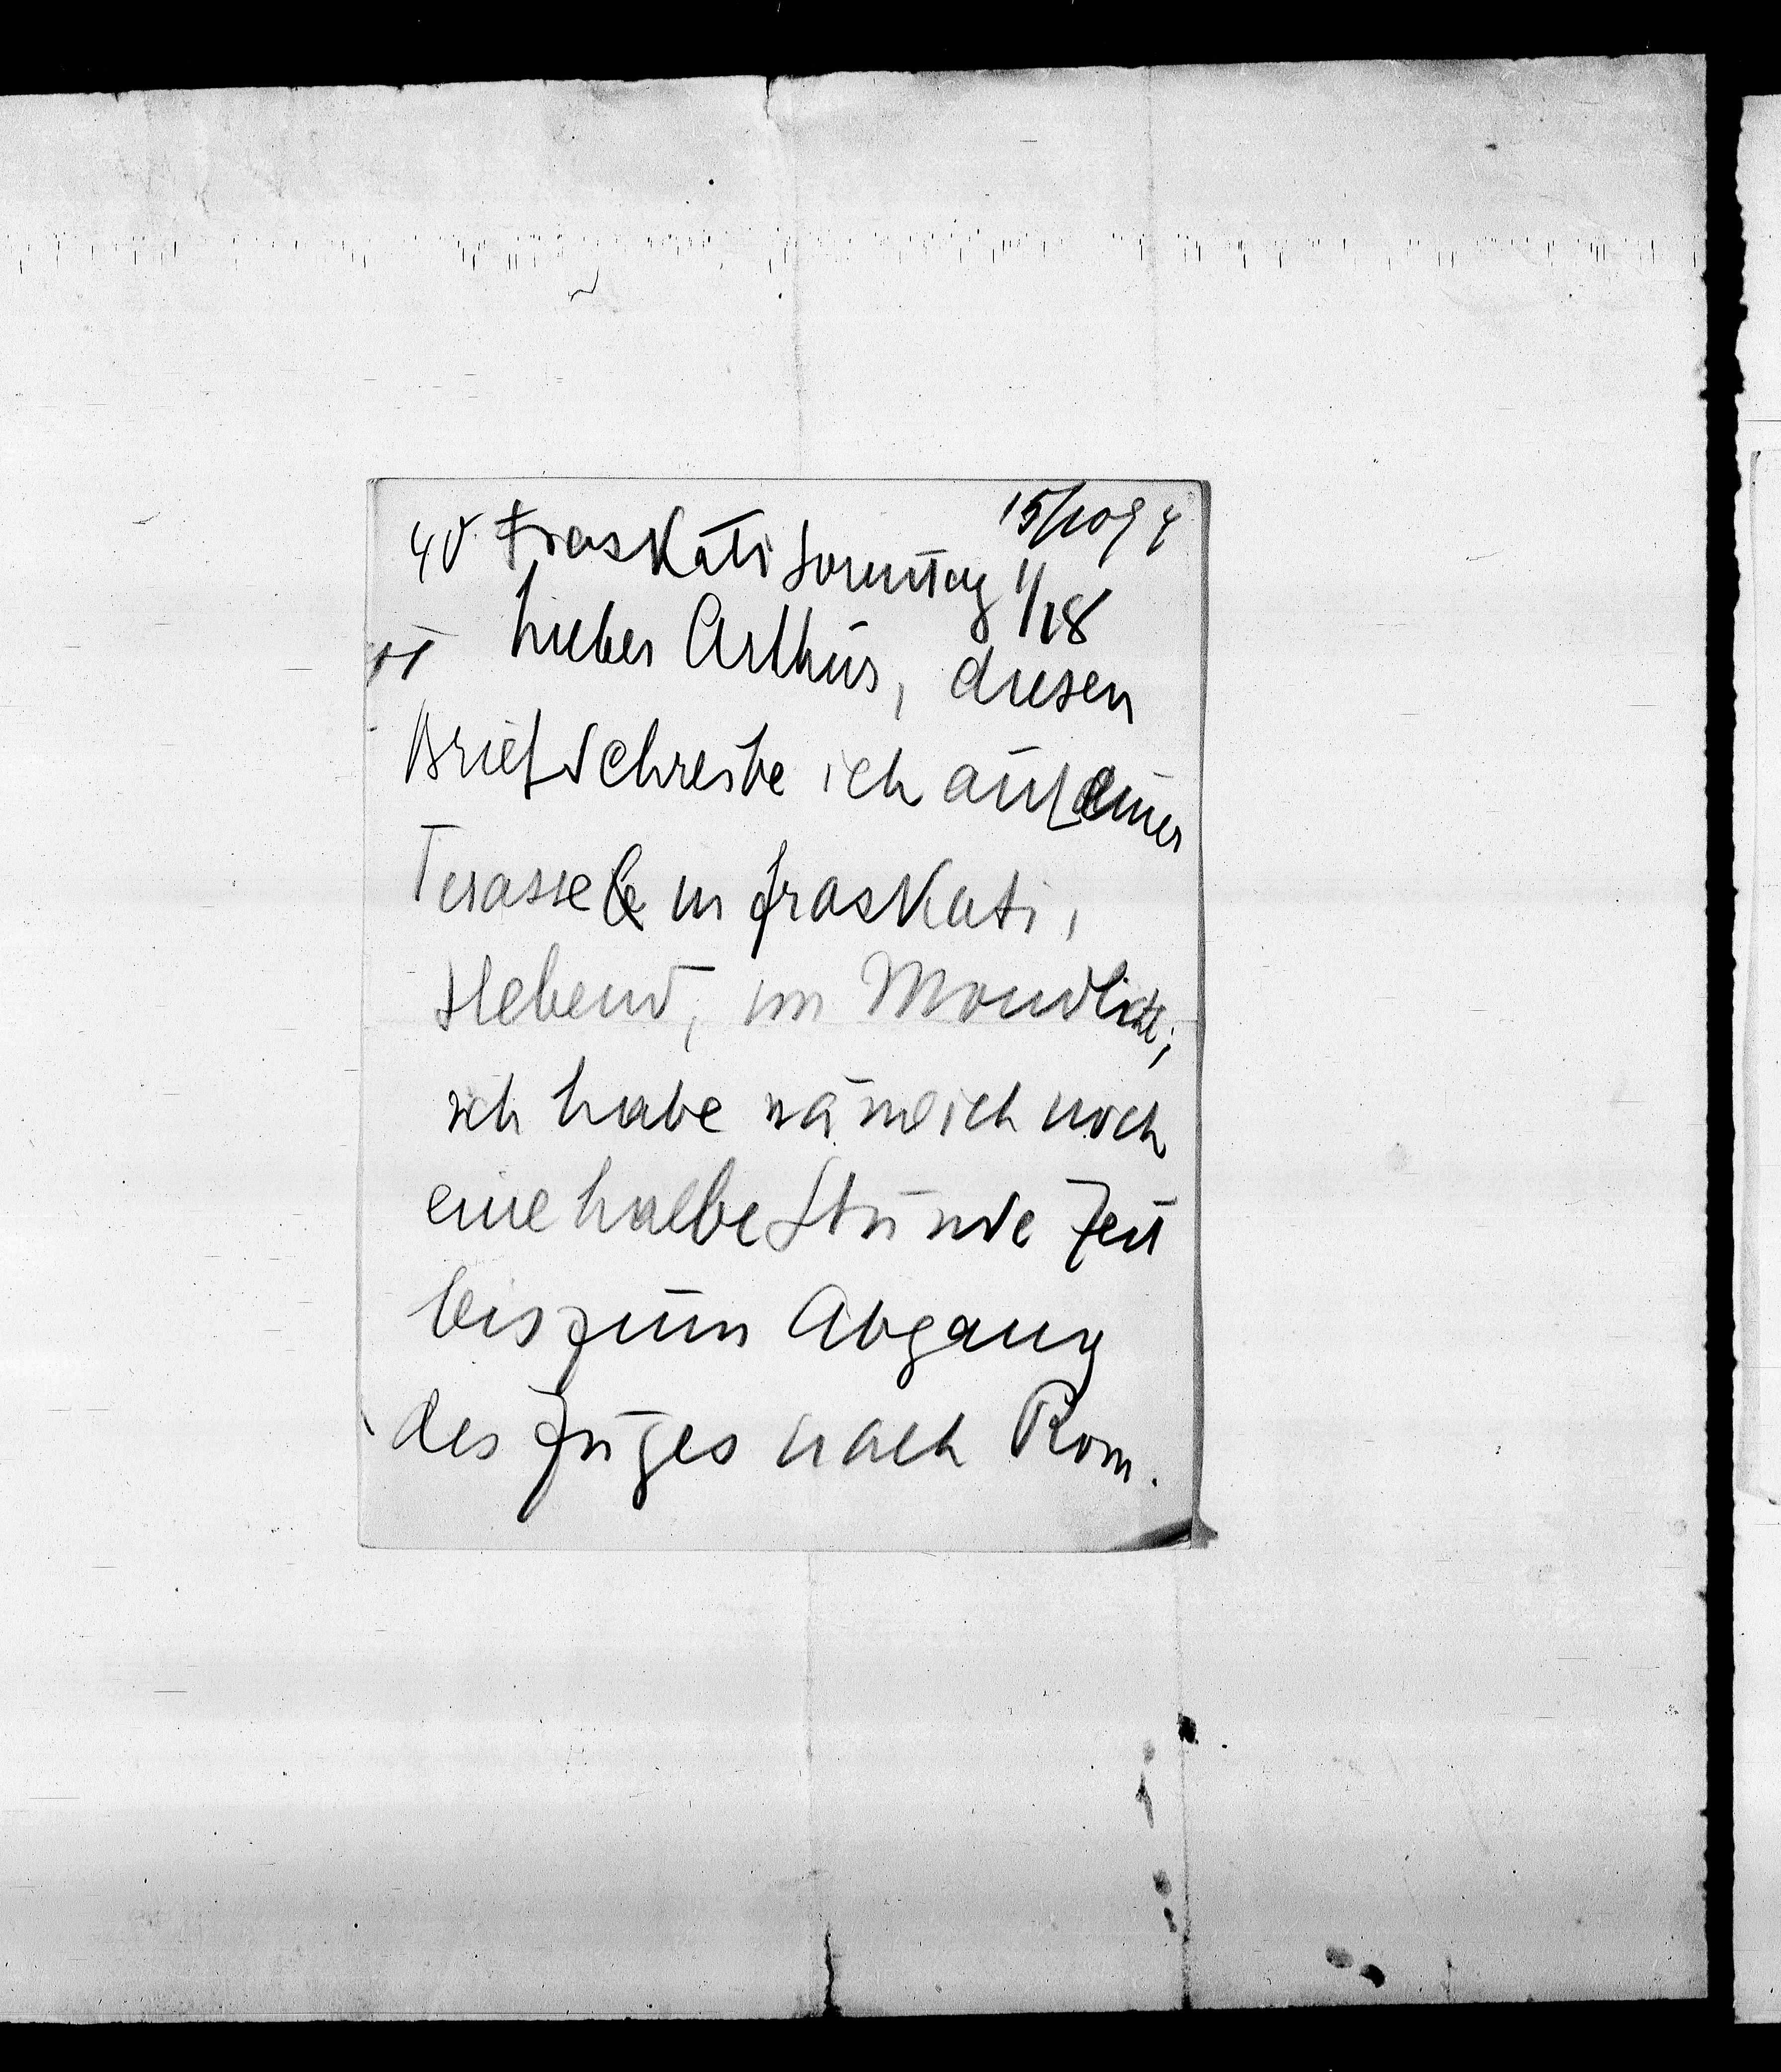 40 Fraskati Sonntag 15/10 94
Lieber Arthur, diesen
Brief schreibe ich auf einer
Terasse in Fraskati,
stehend, im Mondlicht,
ich habe nämlich noch
eine halbe Stunde Zeit
bis zum Abgang
des Zuges nach Rom.